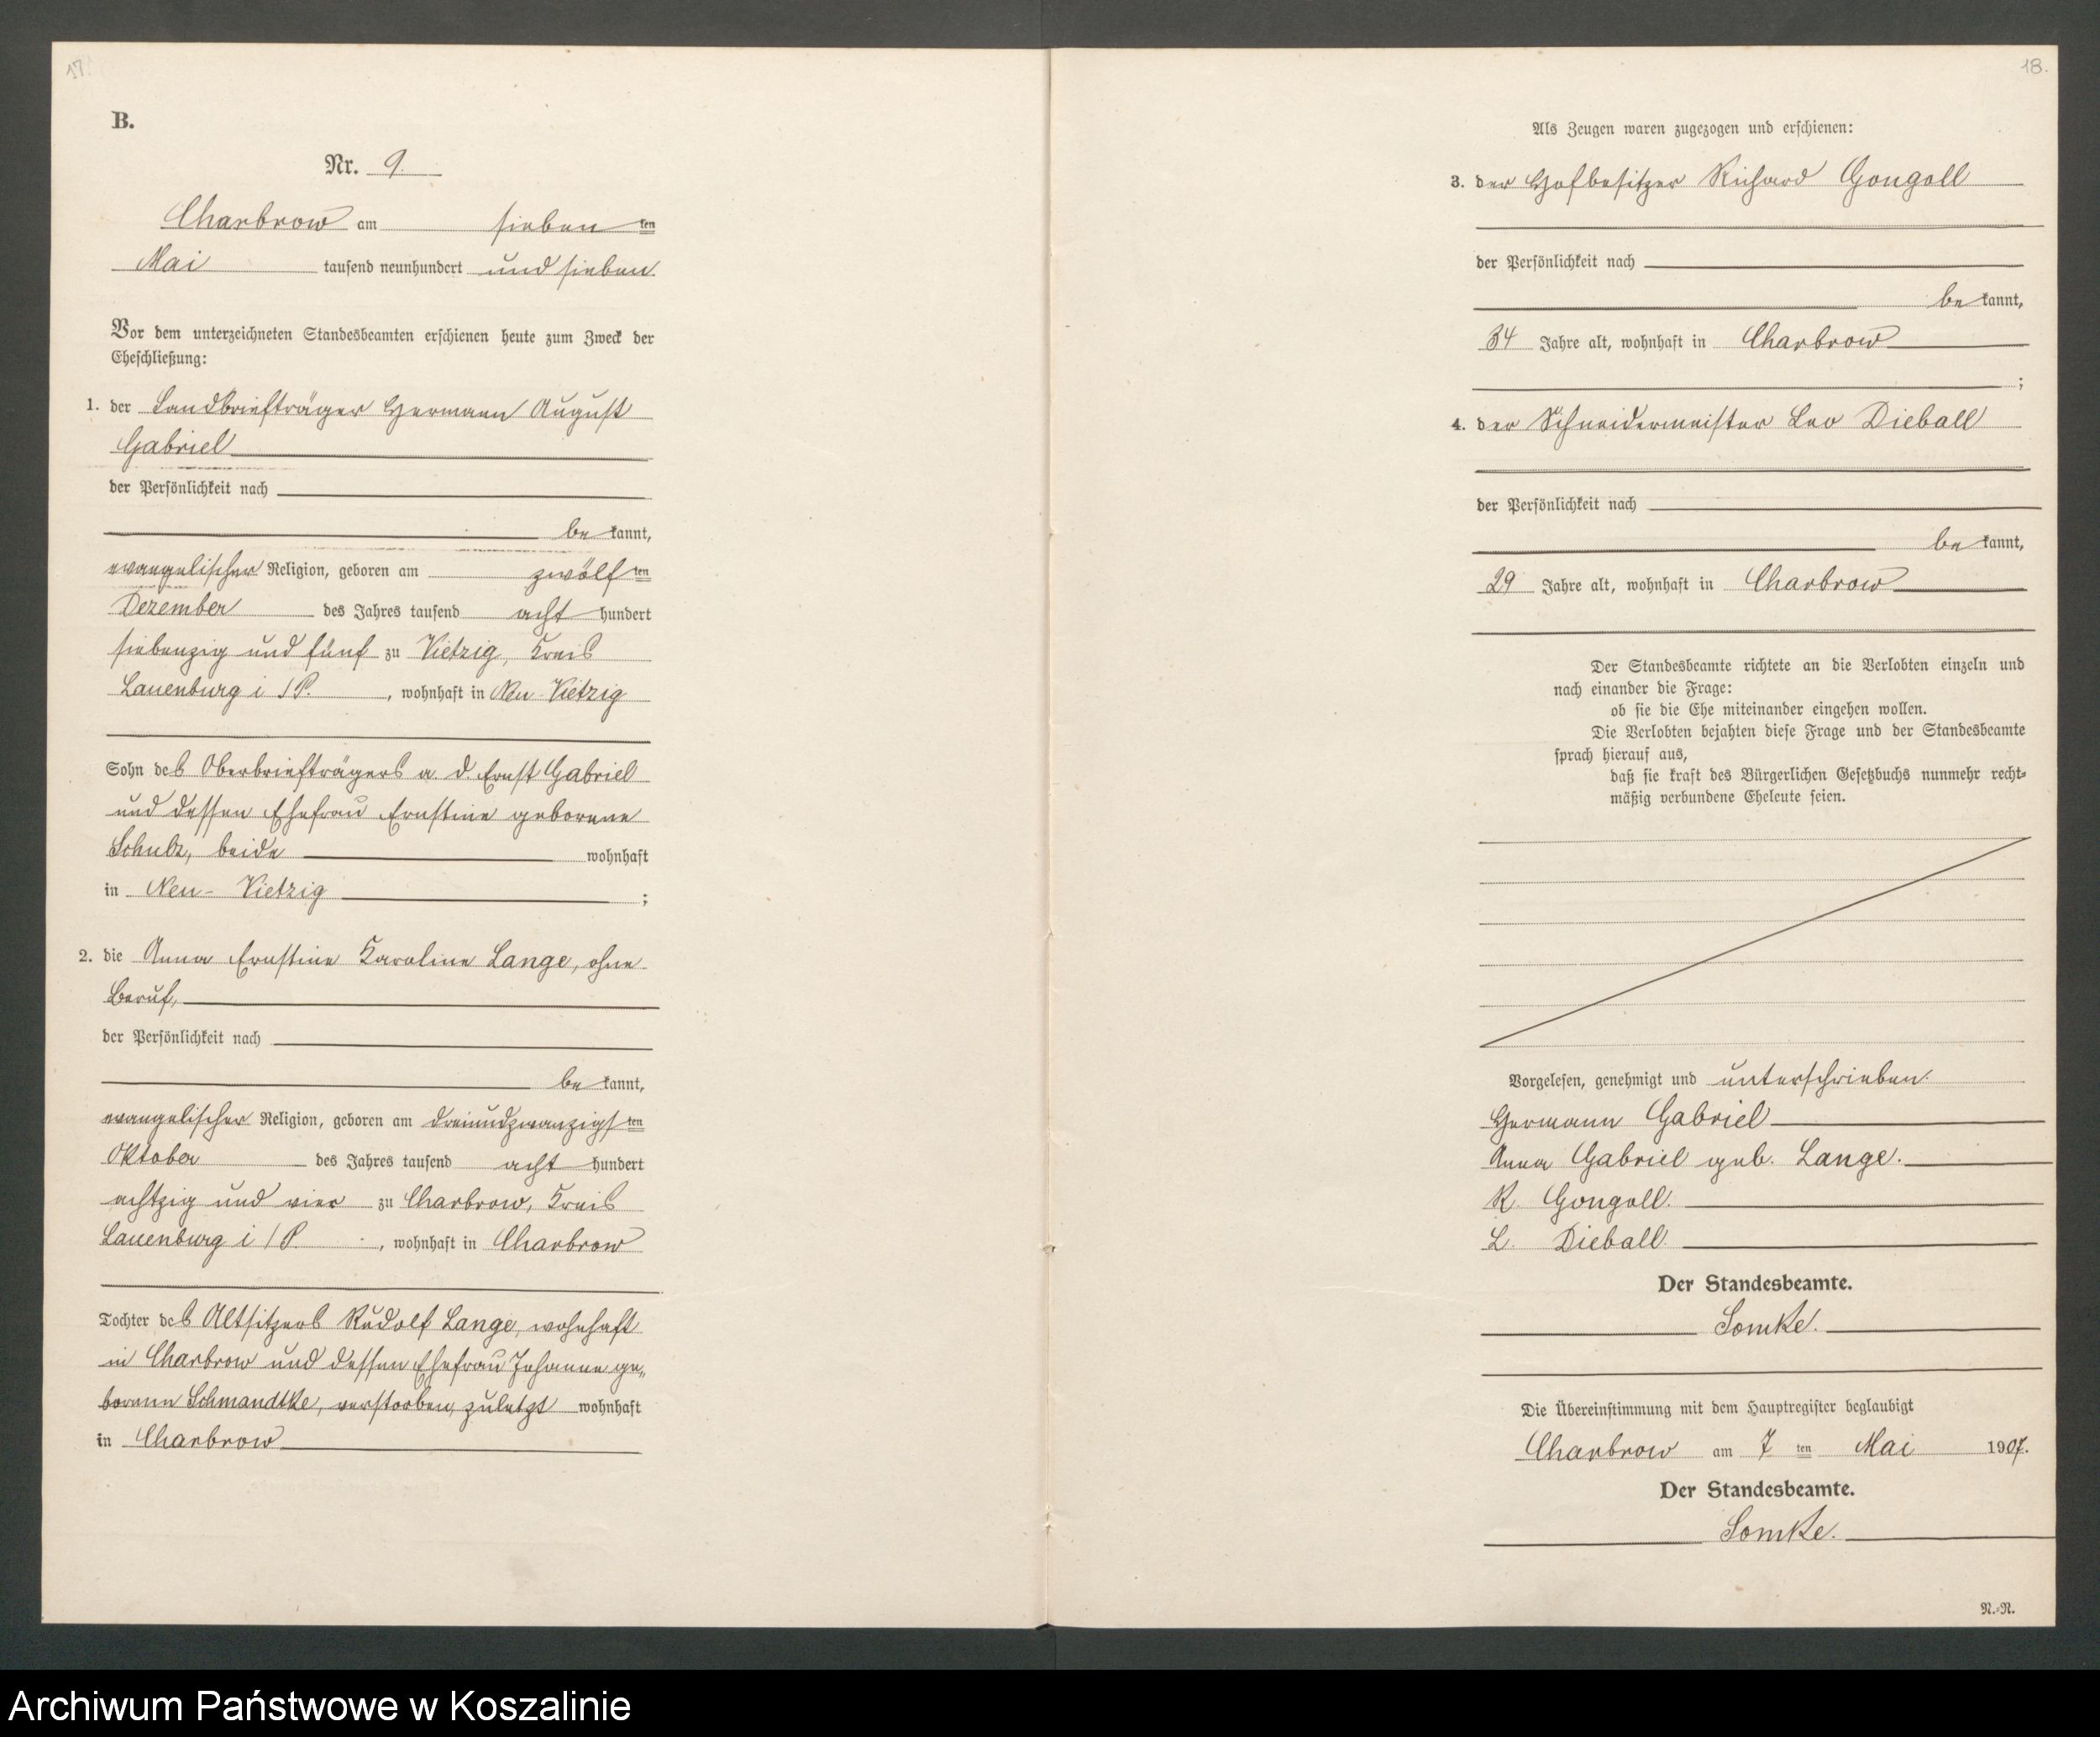 17.
B.
Nr. 9.
Charbrow am sieben ten
Mai tausend neunhundert und sieben.
Vor dem unterzeichneten Standesbeamten erschienen heute zum Zweck der
Eheschließung:
1. der Landbriefträger Hermann August
Gabriel
der Persönlichkeit nach
be kannt,
evangelischer Religion, geboren am zwölf ten
Dezember des Jahres tausend acht hundert
siebenzig und fünf zu Vietzig, Kreis
Lauenburg i/P. , wohnhaft in Neu-Vietzig
Sohn des Oberbriefträgers a. D. Ernst Gabriel
und dessen Ehefrau Ernstine geborene
Schulz, beide wohnhaft
in Neu-Vietzig ;
2. die Anna Ernstine Karoline Lange, ohne
Beruf,
der Persönlichkeit nach
be kannt,
evangelischer Religion, geboren am dreiundzwanzigs ten
Oktober des Jahres tausend acht hundert
achtzig und vier zu Charbrow, Kreis
Lauenburg i/P. , wohnhaft in Charbrow
Tochter des Altsitzers Rudolf Lange, wohnhaft
in Charbrow und dessen Ehefrau Johanne ge„
borenen Schmandtke, verstorben, zuletzt wohnhaft
in Charbrow
18.
Als Zeugen waren zugezogen und erschienen:
3. der Hofbesitzer Richard Gongoll
der Persönlichkeit nach
be kannt,
34 Jahre alt, wohnhaft in Charbrow
;
4. der Schneidermeister Leo Dieball
der Persönlichkeit nach
be kannt,
29 Jahre alt, wohnhaft in Charbrow
Der Standesbeamte richtete an die Verlobten einzeln und
nach einander die Frage:
ob sie die Ehe miteinander eingehen wollen.
Die Verlobten bejahten diese Frage und der Standesbeamte
sprach hierauf aus,
daß sie kraft des Bürgerlichen Gesetzbuchs nunmehr recht-
mäßig verbundene Eheleute seien.
Vorgelesen, genehmigt und unterschrieben.
Hermann Gabriel
Anna Gabriel geb. Lange.
R. Gongoll.
L. Dieball.
Der Standesbeamte.
Somke.
Die Übereinstimmung mit dem Hauptregister beglaubigt
Charbrow am 7 ten Mai 1907.
Der Standesbeamte.
Somke.
N.-R.
Archiwum Państwowe w Koszalinie